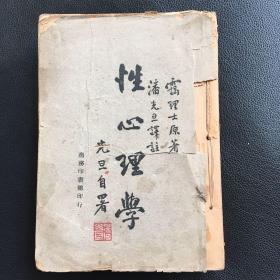 霭理士原著
潘光旦譯註
性心理學
光旦自署
商務印書館印行